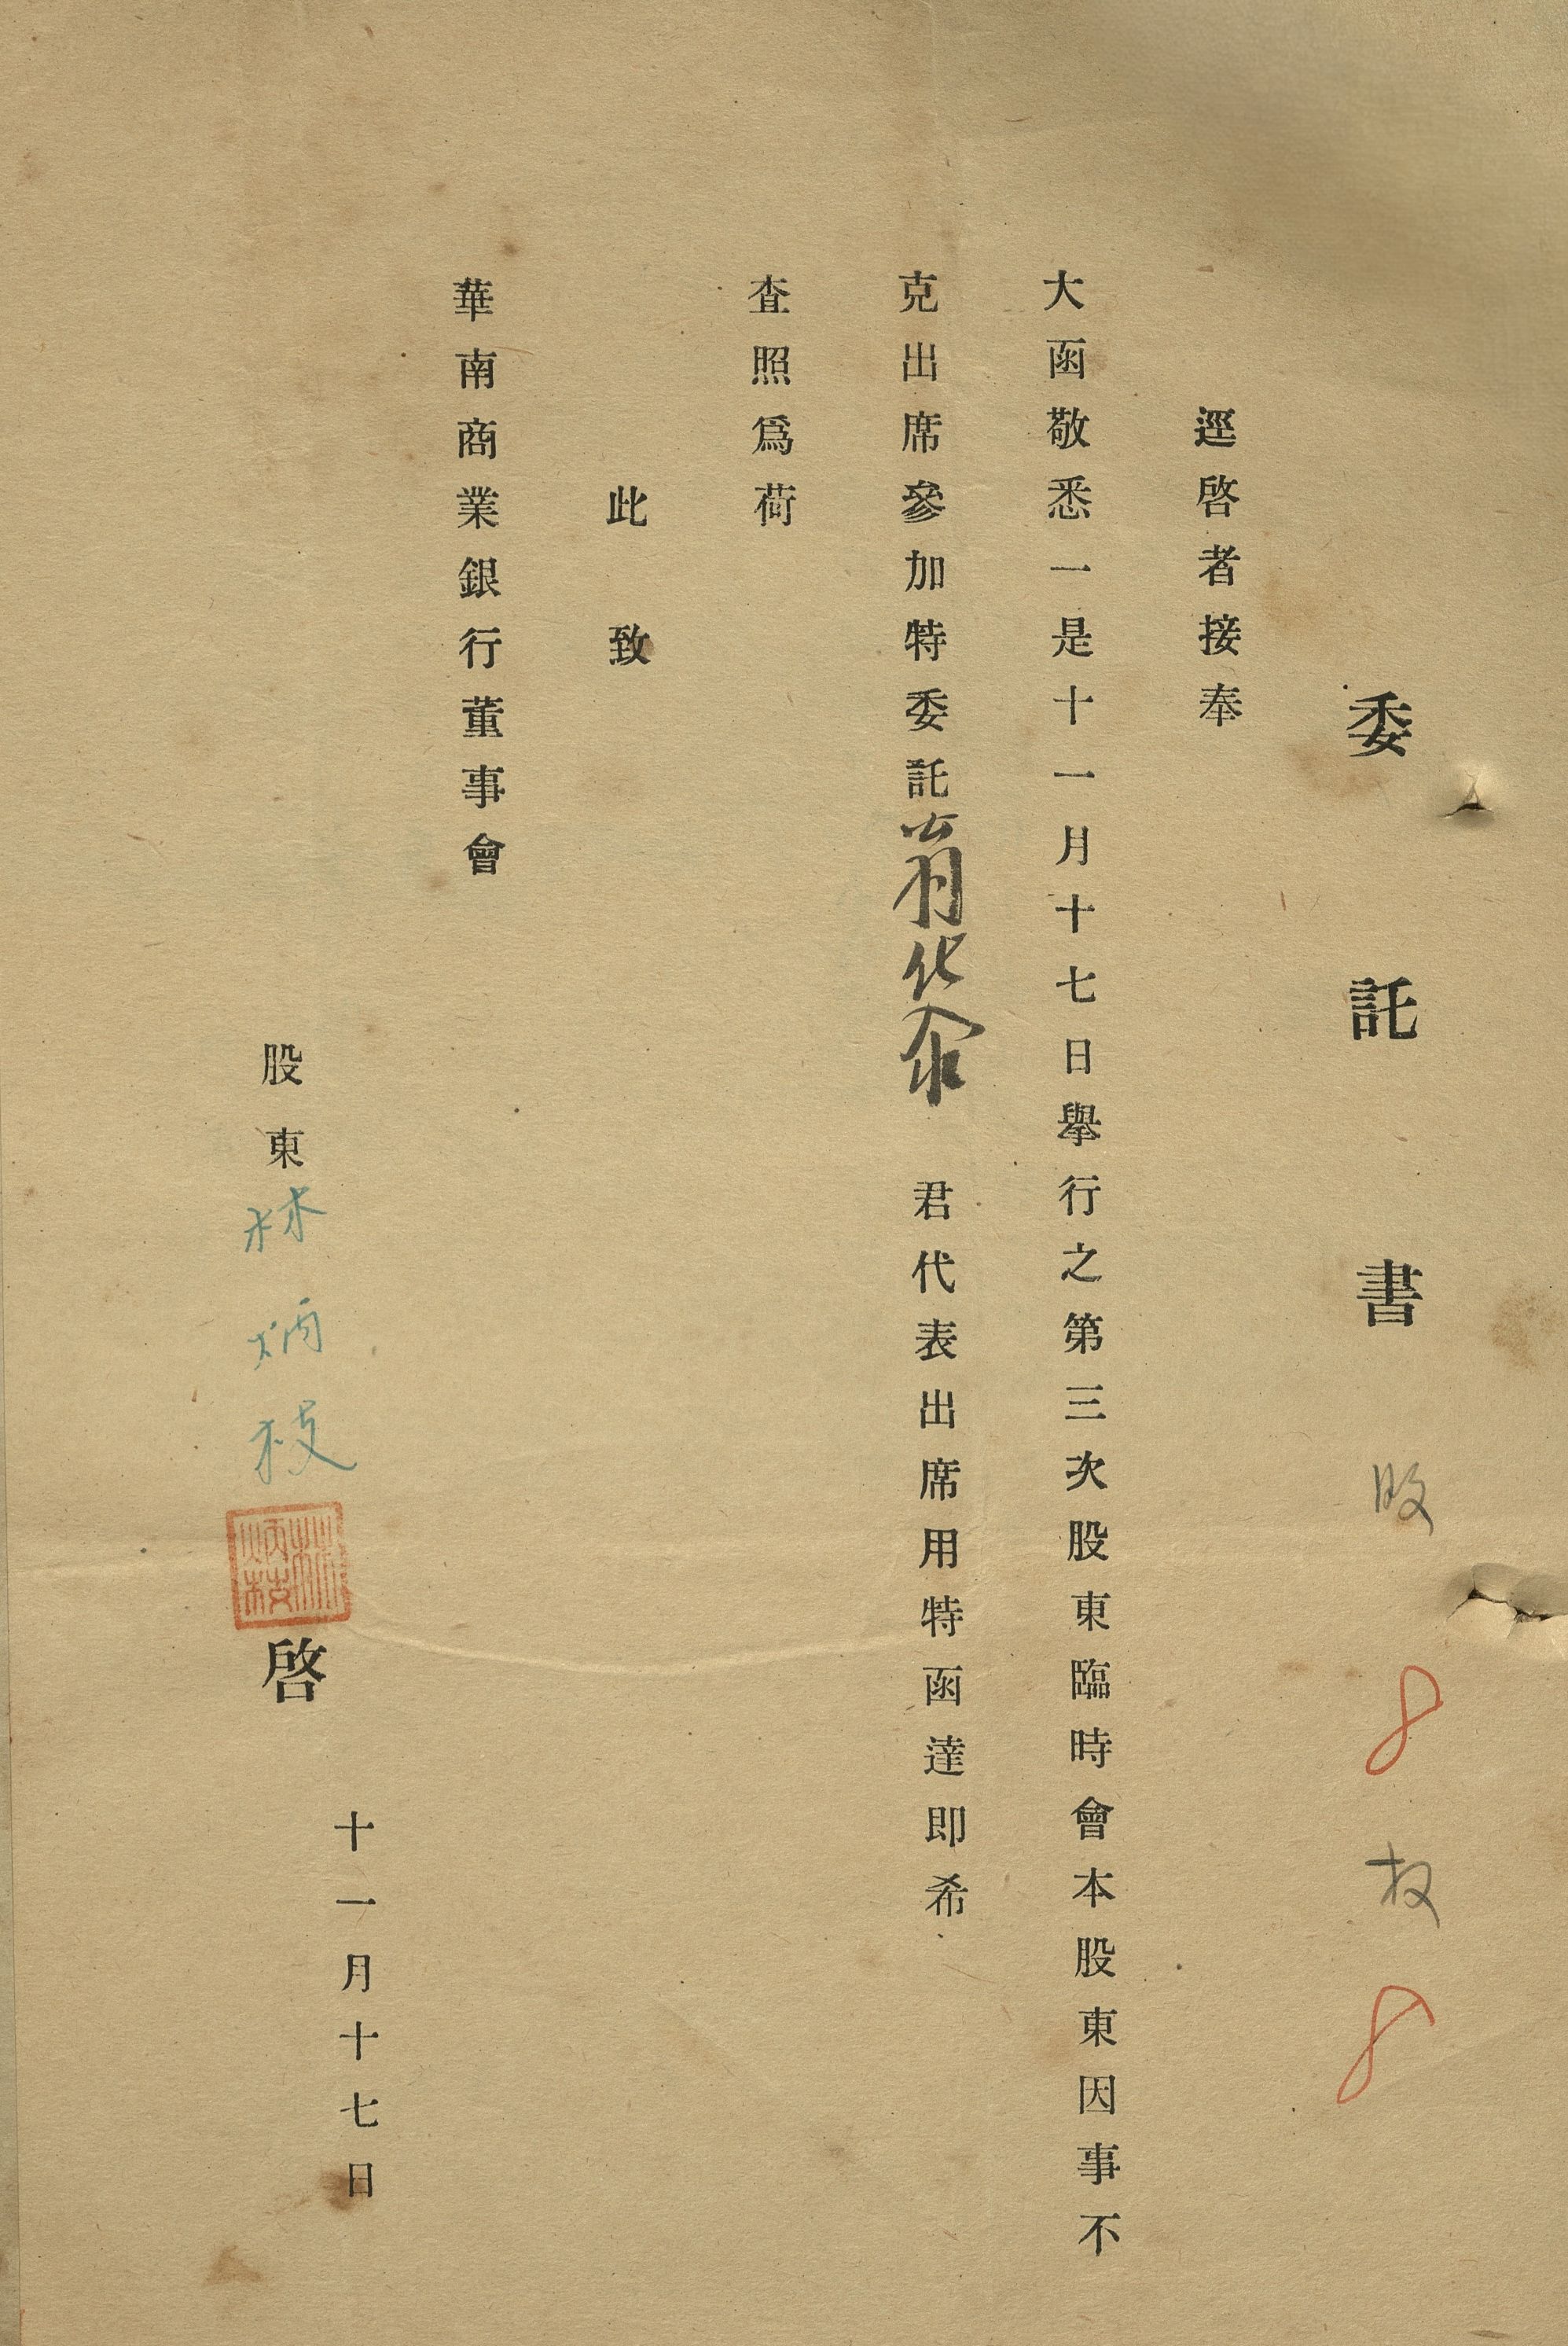 委託書 股 8 权 8
逕啓者接奉
大函敬悉一是十一月十七日舉行之第三次股東臨時會本股東因事不
克出席參加特委託 君代表出席用特函達即希
査照爲荷
此致
華南商業銀行董事會
十一月十七日
股東林炳枝 林炳枝 啓